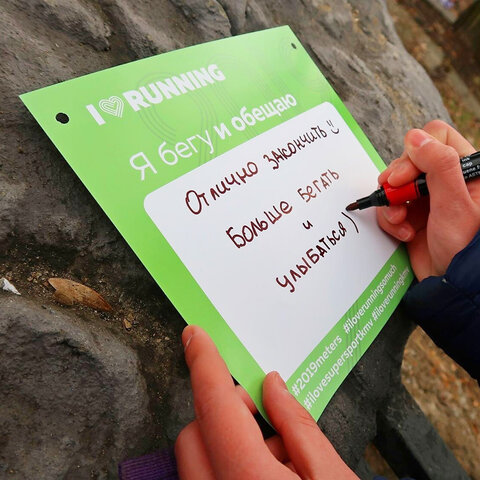 I RUNNING
Я бегу и обещаю
Отлично закончить
Больше бегать
и
улыбаться)
#2019meters #iloverunningsomuch
#ilovesupersportkmv #iloverunningkmv